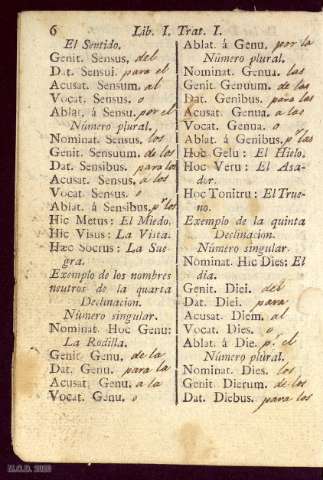 6 Lib. I. Trat. I.
El Sentido.
Genit. Sensus, del
Dat. Sensui. para el
Acusat. Sensum. al
Vocat. Sensus. o
Ablat. á Sensu. por el
Número plural.
Nominat. Sensus, los
Genit. Sensuum. de los
Dat. Sensibus. para los
Acusat. Sensus, a los
Vocat. Sensus. o
Ablat. á Sensibus, pr los
Hic Metus: El Miedo.
Hic Visus: La Vista.
Hæc Socrus: La Sue-
gra.
Exemplo de los nombres
neutros de la quarta
Declinacion.
Número singular.
Nominat. Hoc Genu:
La Rodilla.
Genit. Genu, de la
Dat. Genu. para la
Acusat. Genu. a la
Vocat. Genu. o
Ablat. á Genu. por la
Número plural.
Nominat. Genua. las
Genit. Genuum. de las
Dat. Genibus. para las
Acusat. Genua. a las
Vocat. Genua. o
Ablat. á Genibus. pr las
Hoc Gelu: El Hielo.
Hoc Veru: El Asa-
dor.
Hoc Tonitru: El True-
no.
Exemplo de la quinta
Declinacion.
Número singular.
Nominat. Hic Dies: El
dia.
Genit. Diei. del
Dat. Diei. para
Acusat. Diem. al
Vocat. Dies. o
Ablat. á Die. pr el
Número plural.
Nominat. Dies. los
Genit. Dierum. de los
Dat. Diebus. para los
M.C.D. 2020